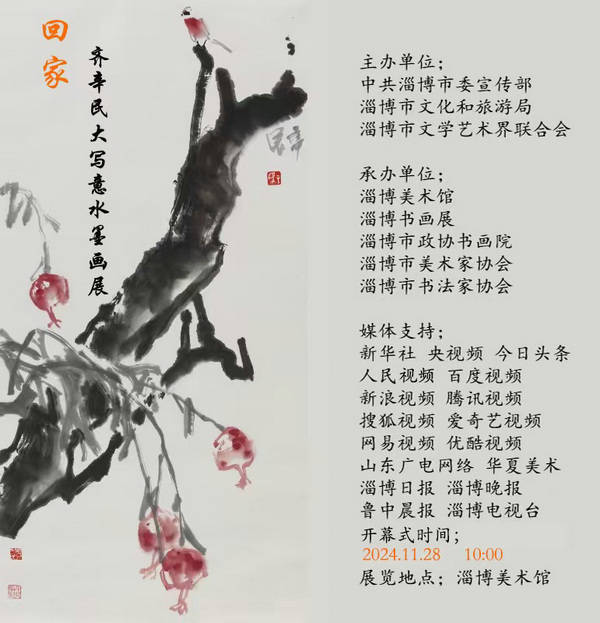 回家
齐辛民大写意水墨画展
主办单位；
中共淄博市委宣传部
淄博市文化和旅游局
淄博市文学艺术界联合会
承办单位；
淄博美术馆
淄博书画展
淄博市政协书画院
淄博市美术家协会
淄博市书法家协会
媒体支持；
新华社 央视频 今日头条
人民视频 百度视频
新浪视频 腾讯视频
搜狐视频 爱奇艺视频
网易视频 优酷视频
山东广电网络 华夏美术
淄博日报 淄博晚报
鲁中晨报 淄博电视台
开幕式时间；
2024.11.28 10:00
展览地点；淄博美术馆